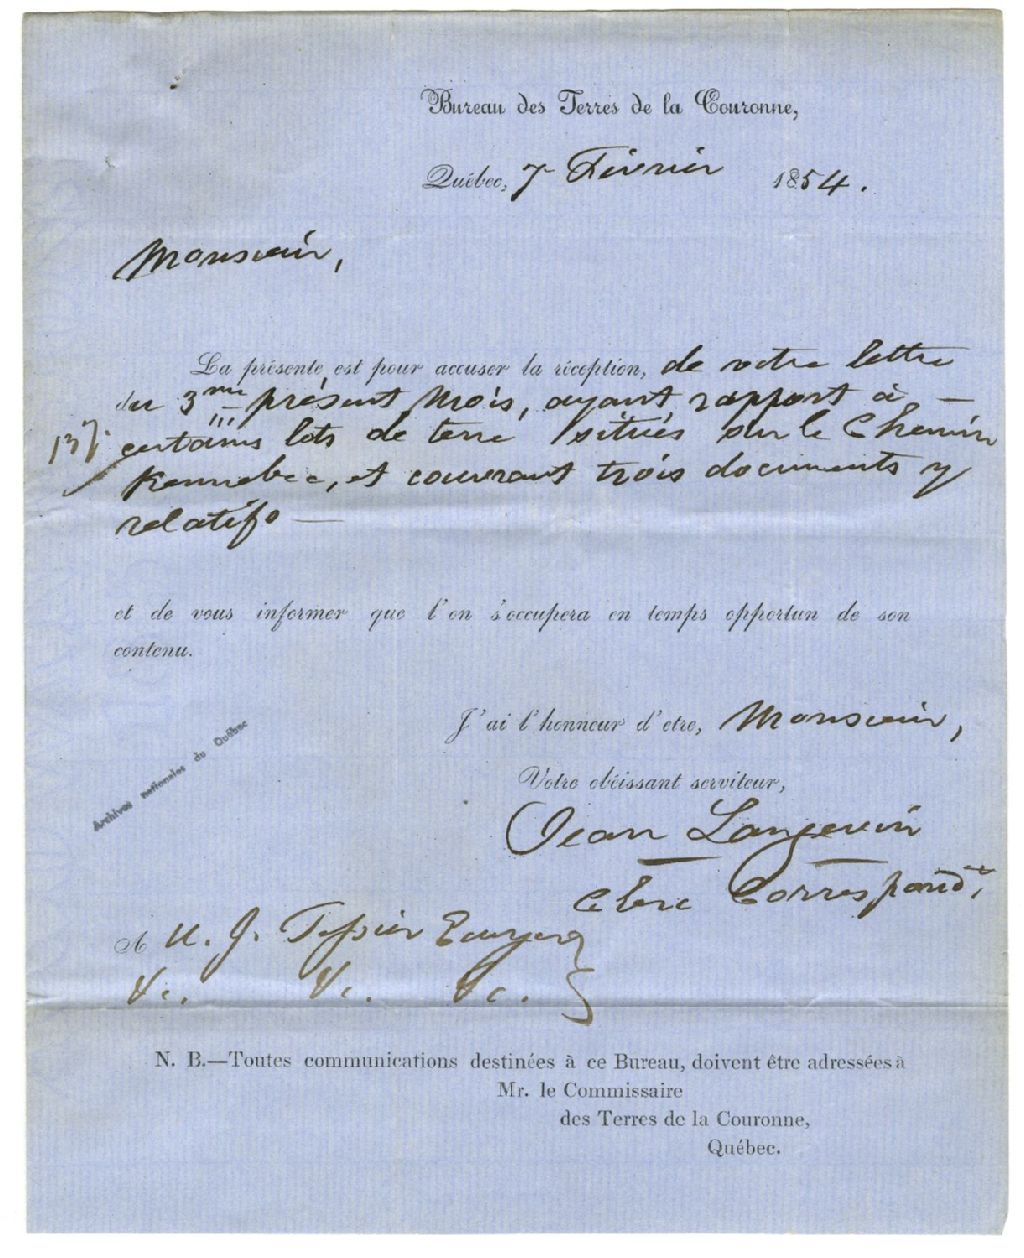 Bureau des Terres de la Couronne,
Québec, 7 Février 1854.
Monsieur,
La présente est pour accuser la réception, de votre lettre
du 3me présent Mois, ayant rapport à —
137. certains lots de terre situés sur le Chemin
Kennebec, et couvrant trois documents y
relatifs —
et de vous informer que l'on s'occupera en temps opportun de son
contenu.
J'ai l'honneur d'etre, Monsieur,
Votre obéissant serviteur,
Jean Langevin
Clerc Correspondt.
Archives nationales du Québec
A U. J. Tessier Ecuyer
&c. &c. &c.
N. B.—Toutes communications destinées à ce Bureau, doivent être adressées à
Mr. le Commissaire
des Terres de la Couronne,
Québec.